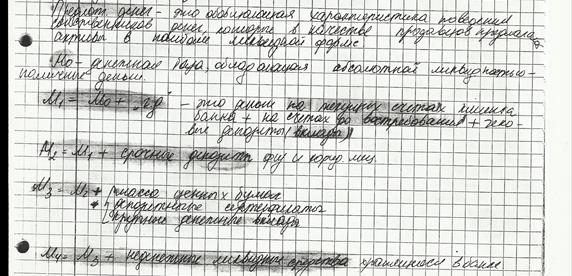 Предлож денег - это обобщающая характеристика поведения
собственников денег, которые в качестве продавцов предлага
активы в наиболее ликвидной форме
М0 - денежная база, обладающая абсолютной ликвидностью -
наличные деньги.
М1 = М0 + „чд" - это деньги на текущих счетах клиента
банка + на счетах до востребования + чеко-
вые депозиты (вклады)
М2 = М1 + срочные депозиты физ и юрид лиц.
М3 = М2 + масса ценных бумаг
+ депозитные сертификаты
крупные денежные вклады
М4 = М3 + неденежные ликвидные средства хранящиеся в банке